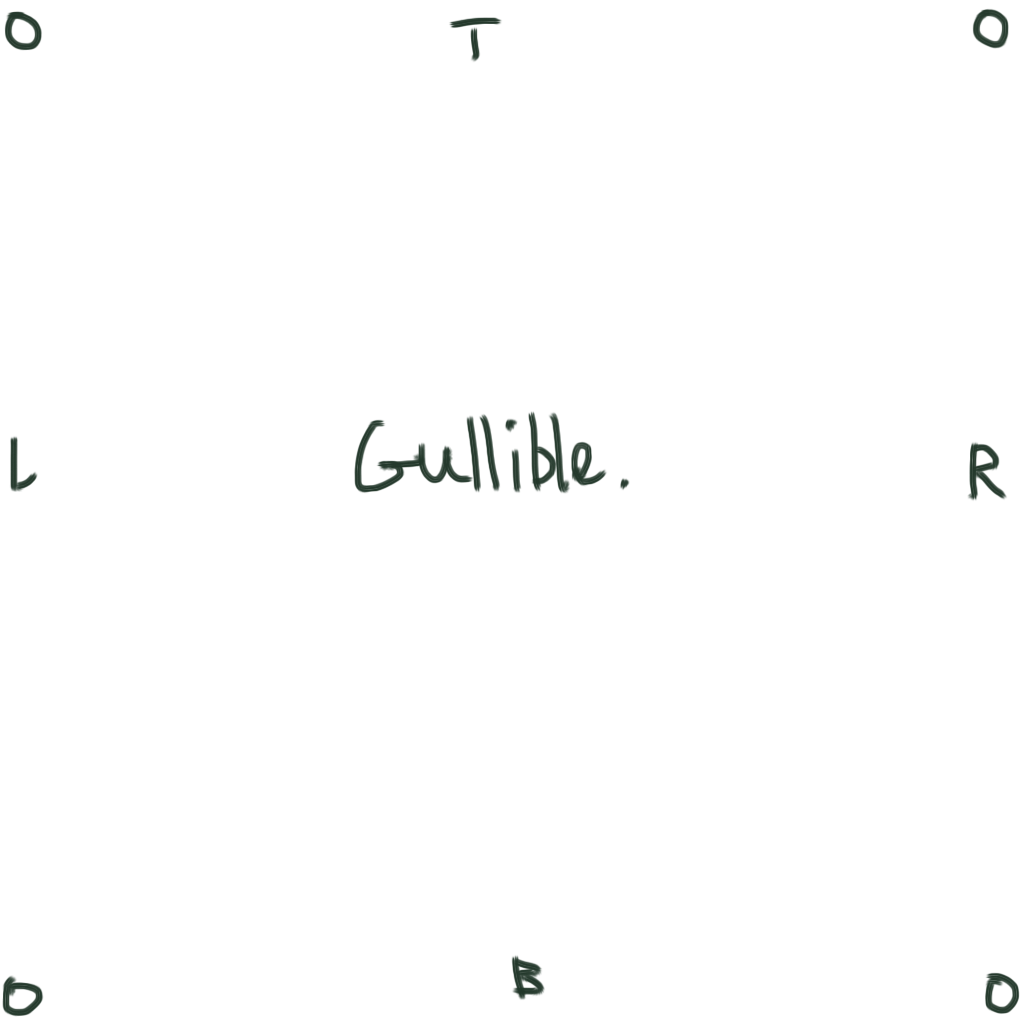 O T O
L Gullible. R
O B O